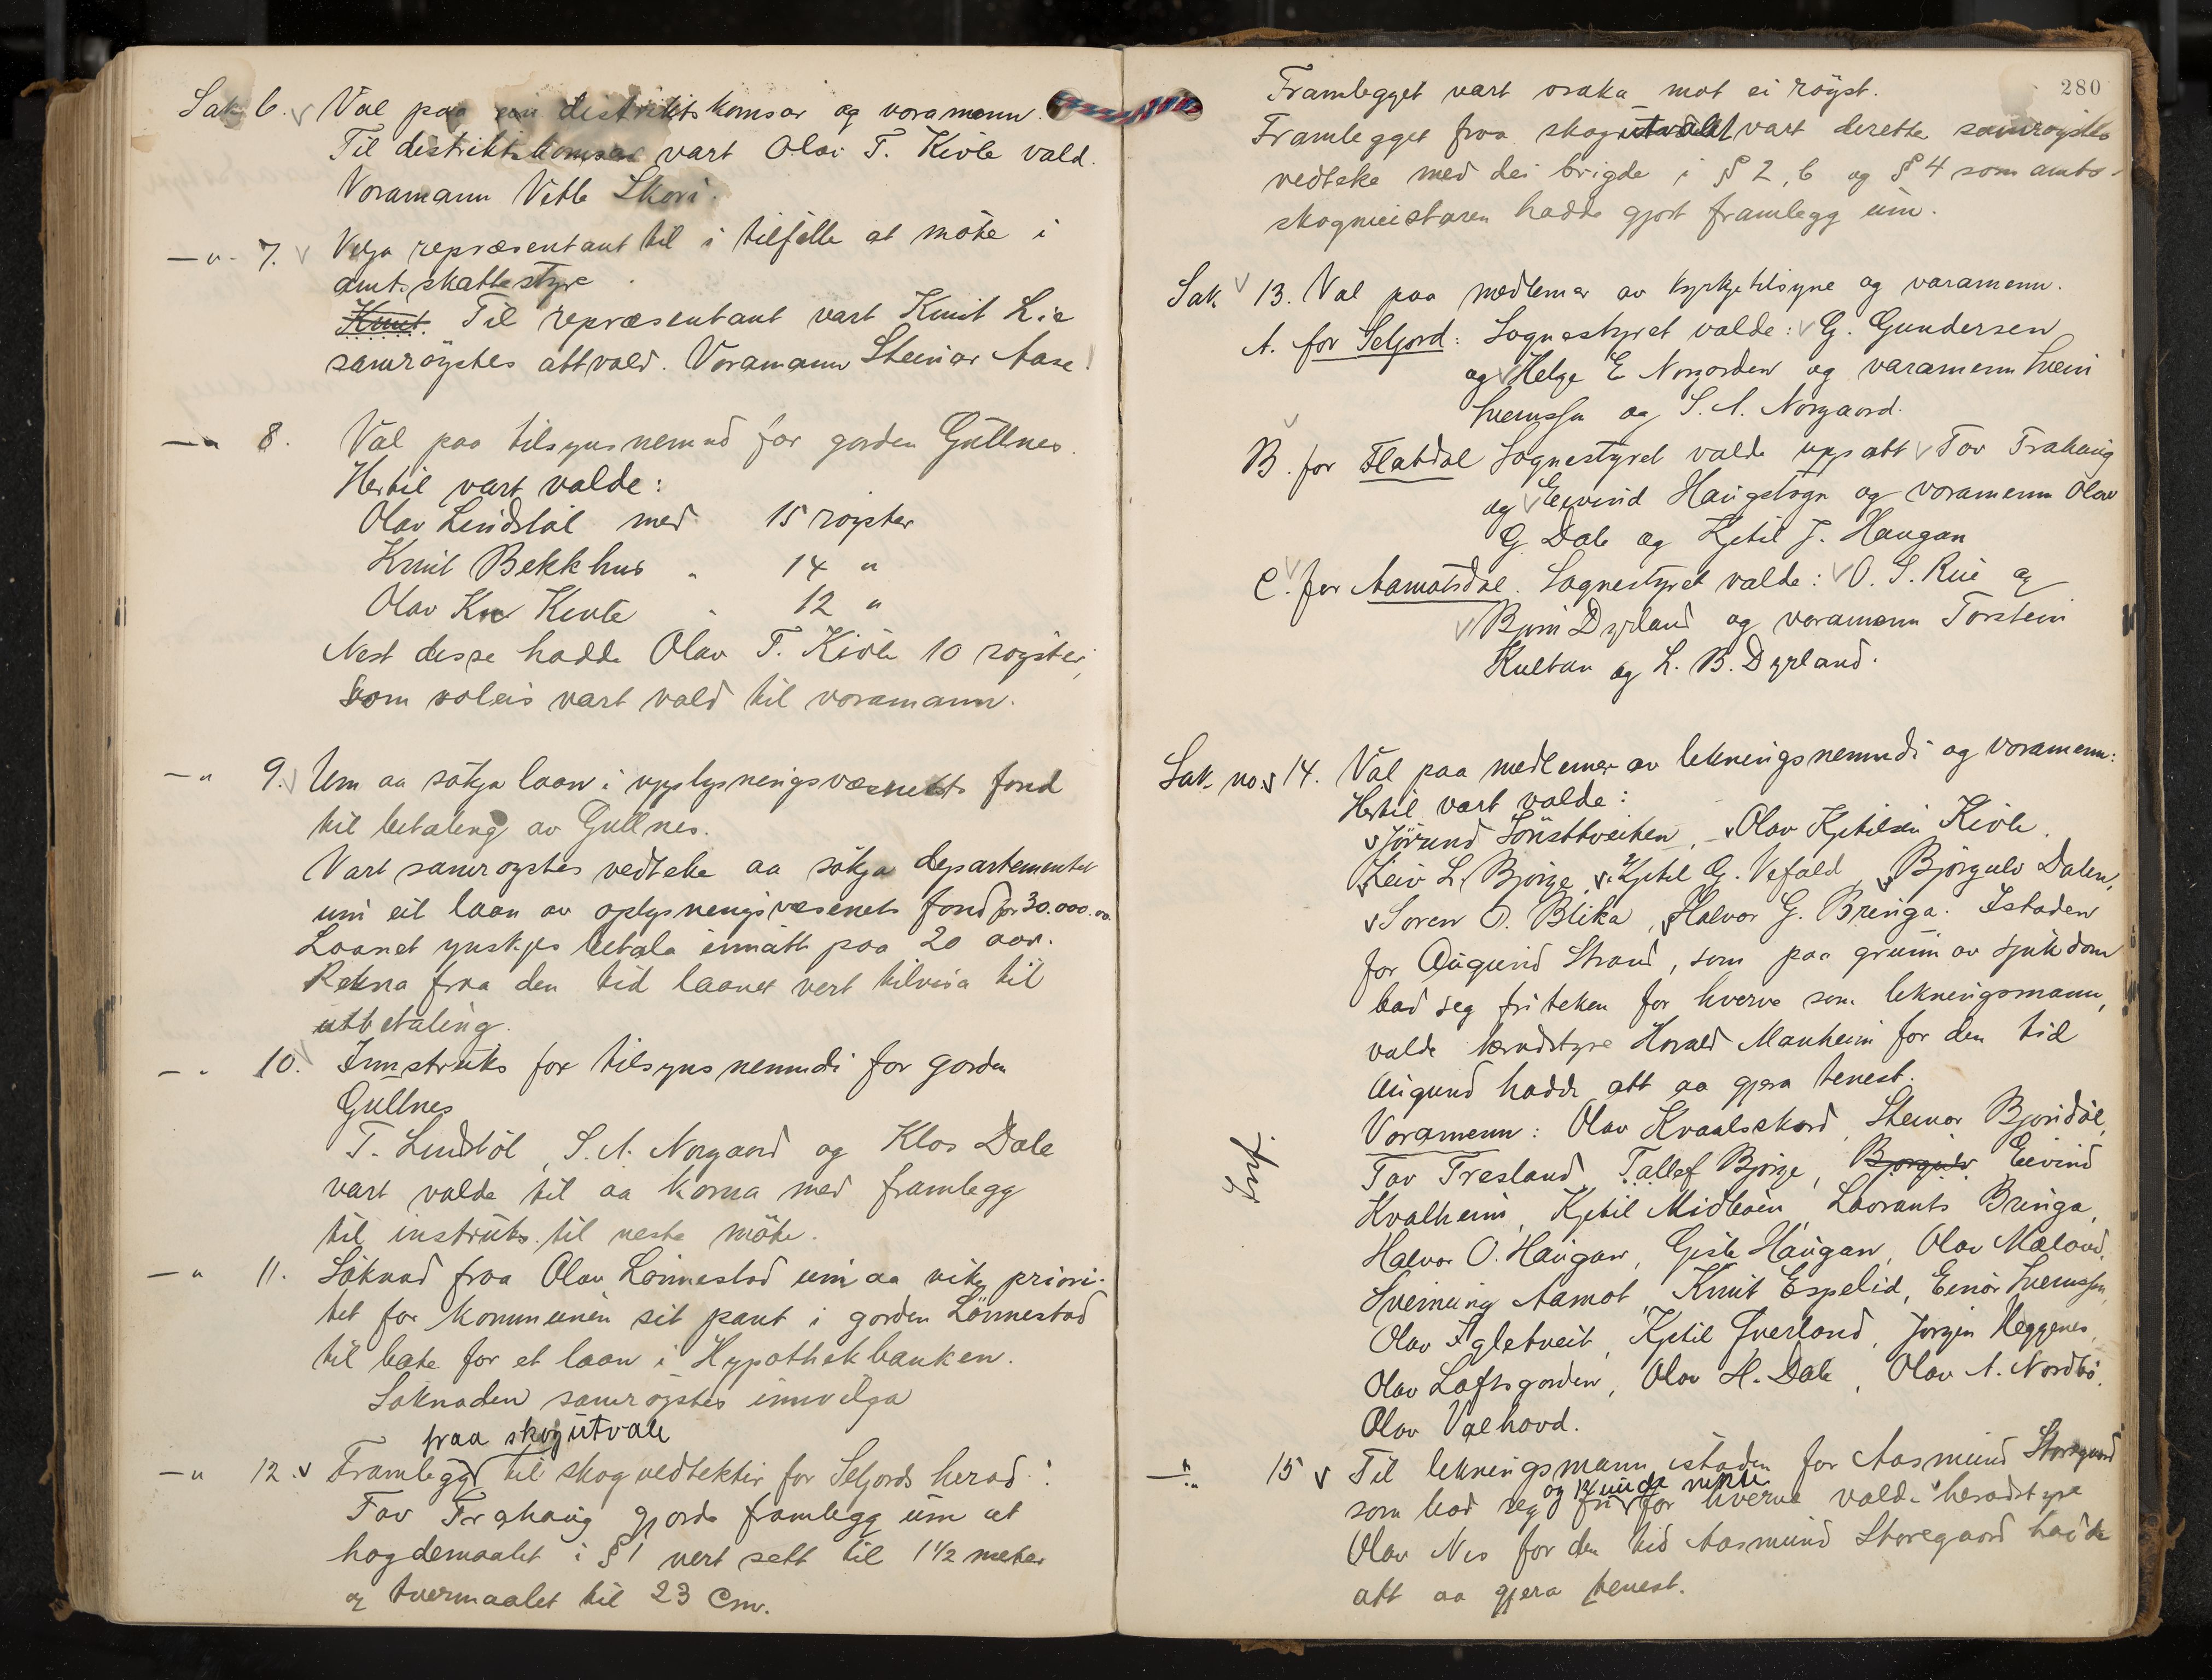 Sak 6. Val paa ein distriktskomsar og varamann.
Til distriktskomsar vart Olav T. Kivle vald.
Varamann Vetle Skori.
—"— 7. Velja repræsentant til i tilfelle at møte i
amtsskattestyre
Knut. Til repræsentant vart Knut Lie
samrøystes attvald. Varamann Steinar Aase.
—" 8. Val paa tilsynsnemnd for garden Gullnes.
Hertil vart valde:
Olav Lindstøl med 15 røyster
Knut Bekkhus " 14 "
Olav Kivle " 12 "
Nest desse hadde Olav T. Kivle 10 røyster,
som soleis vart vald til varamann.
—" 9. Um aa søkja laan i upplysningsvæsenets fond
til betaling av Gullnes.
Vart samrøystes vedteke aa søkja departementet
um eit laan av oplysningsvæsenets fond for 30.000.00.
Laanet ynskjes betala innatt paa 20 aar.
Rekna fraa den tid laanet vert tilvisa til
utbetaling.
—" 10. Innstruks for tilsynsnemndi for garden
Gullnes
T. Lindstøl, S. A. Norgaard og Klas Dale
vart valde til aa koma med framlegg
til instruks til neste møte.
—" 11. Søknad fraa Olav Lønnestad um aa vike priori-
tet for kommunen sit pant i garden Lønnestad
til bate for et laan i Hypothekbanken.
Søknaden samrøystes innvilga
fraa skogutvale
—" 12. Framlegg til skogvedtekter for Seljords herad:
Tov Trahaug gjorde framlegg um at
hogdemaalet i § 1 vert sett til 1 1/2 meter
og tvermaalet til 23 Cm.
280
Framlegget vart vraka mot ei røyst.
Framlegget fraa skogutvalet vart deretter samrøystes
vedteke med dei brigde i § 2, 6 og § 4 som amts-
skogmeistaren hadde gjort framlegg um.
Sak 13. Val paa medlemer av kyrkjetilsyne og varamenn.
A. for Seljord: Sognestyret valde: G. Gundersen
og Helge E. Norgarden og varamenn Svein
Sveinssen og S. A. Norgaard.
B. for Flatdal Sognestyret valde upp att Tov Trahaug
og Eivind Haugstogn og varamenn Olav
G. Dale og Kjetil J. Haugan
C. for Aamotsdal. Sognestyret valde: O. S. Rue og
Bjørn Dyrland og varamenn Torstein
Kultan og L. B. Dyrland.
Sak no 14. Val paa medlemer av likningsnemndi og varamenn:
Hertil vart valde:
Jørund Sønsttveiten, Olav Kjetilsen Kivle,
Leiv L. Bjørge, Kjetil G. Vefald, Bjørgulv Dalen,
Søren O. Blika, Halvor G. Bringa. Istaden
for Augund Strand, som paa grunn av sjukdom
bad seg friteken for hverve som likningsmann,
valde heradstyre Harald Manheim for den tid
Augund hadde att aa gjera tenest.
Varamenn: Olav Kvaalskard, Steinar Bjorndøl,
Tov Tresland, Tallef Bjørge, Bjørgulv Eivind
Kvalheim, Kjetil Midbøen, Laurants Bringa,
Halvor O. Haugan, Gisle Haugan, Olav Mæland,
Sveinung Aamot, Knut Espelid, Einar Sveinssen,
Olav Igletveit, Kjetil Gverland, Jørgen Heggenes,
Olav Loftsgarden, Olav H. Dale, Olav A. Nordbø,
Olav Valhovd.
—"— 15 Til likningsmann istaden for Aasmund Storegaard
som bad seg fri for hverve valde heradstyre
Olav Nes for den tid Aasmund Storegaard hadde
att aa gjera tenest.